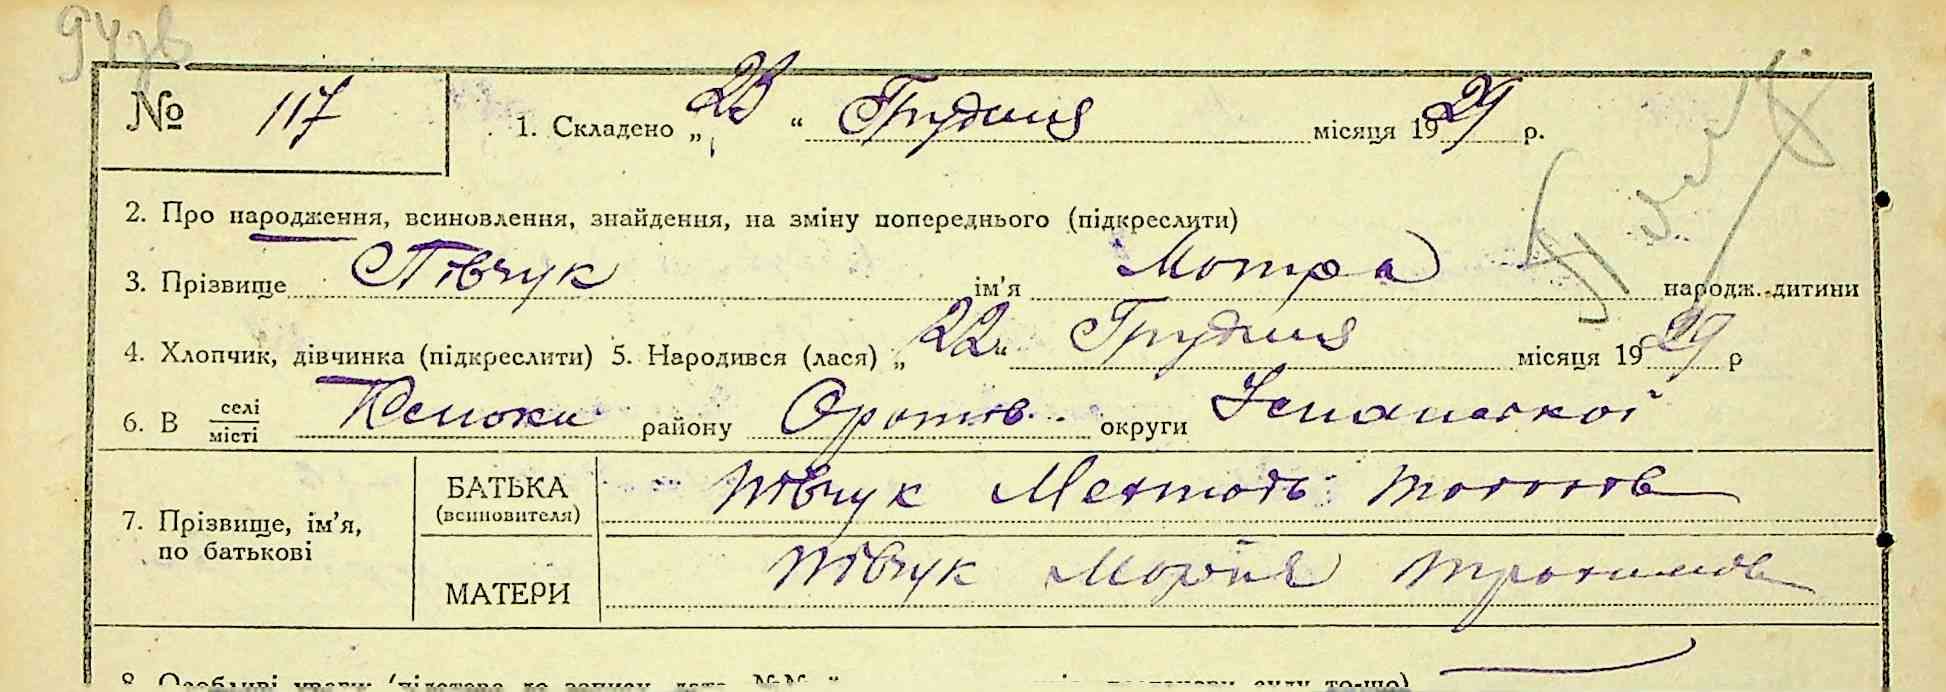 № 117
1. Складено „ 23 “ Грудня місяця 1929 р.
2. Про народження, всиновлення, знайдення, на зміну попереднього (підкреслити)
3. Прізвище Півчук ім'я Мотря народж. дитини
4. Хлопчик, дівчинка (підкреслити) 5. Народився (лася) „ 22 “ Грудня місяця 1929 р
6. В селі/місті району Оратів округи Уманської
7. Прізвище, ім'я, по батькові
БАТЬКА (всиновителя) Півчук
МАТЕРИ Півчук Марія
8. Особливі уваги (підстава до запису, дата, №№